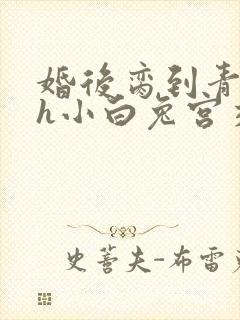 婚後离到青
h小白兔宫
史蒂夫-布雷